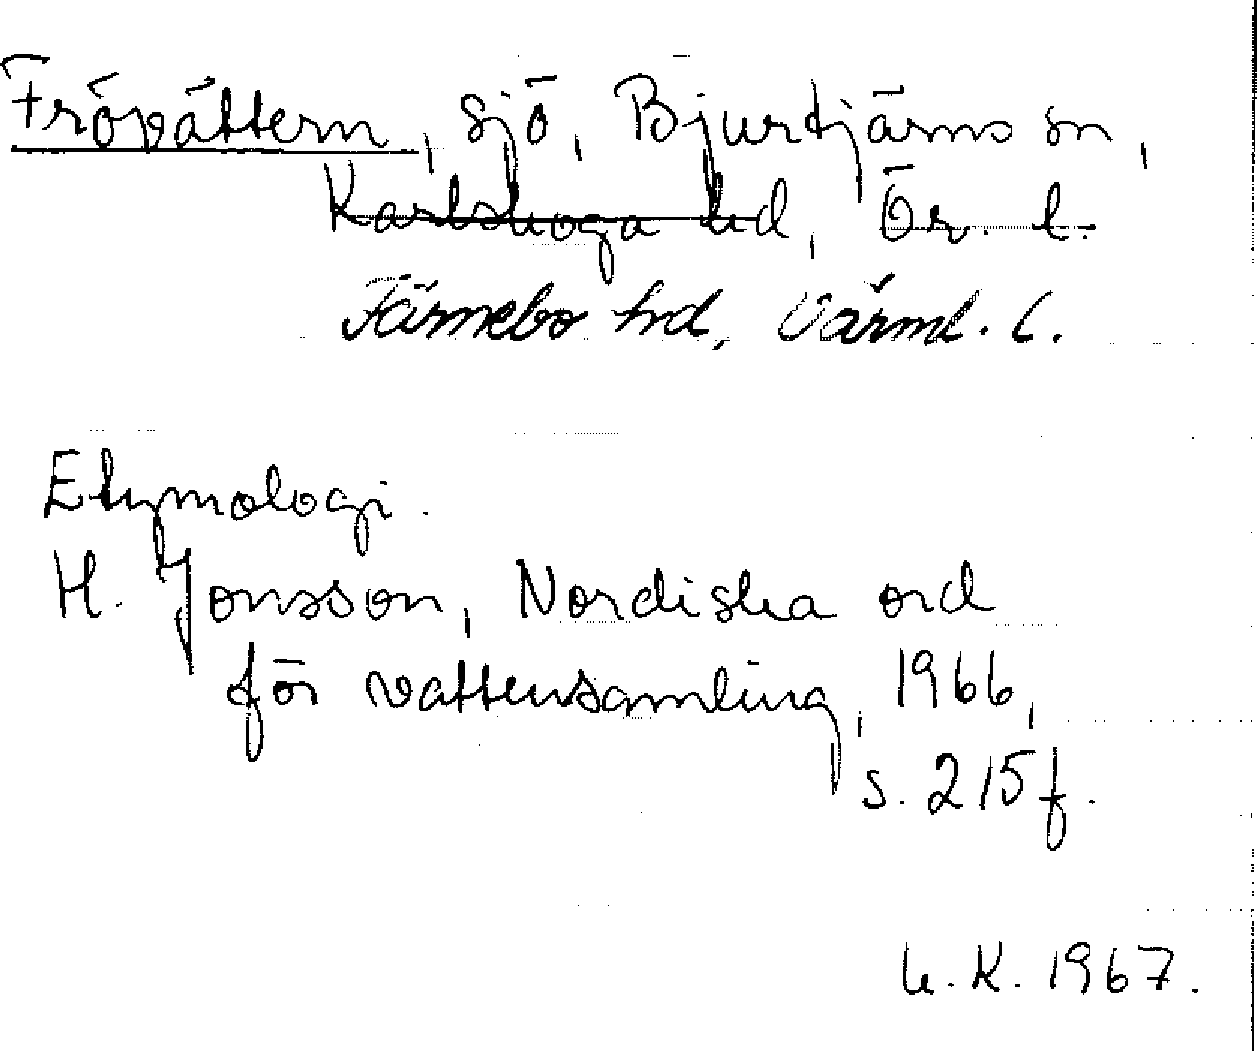 Frövättern, sjö, Bjurtjärns sn,
Karlskoga hd, Ör. l.
Färnebo hd, Värml. l.
Etymologi.
H. Jonsson, Nordiska ord
för vattensamling, 1966,
s. 215 f.
U. K. 1967.